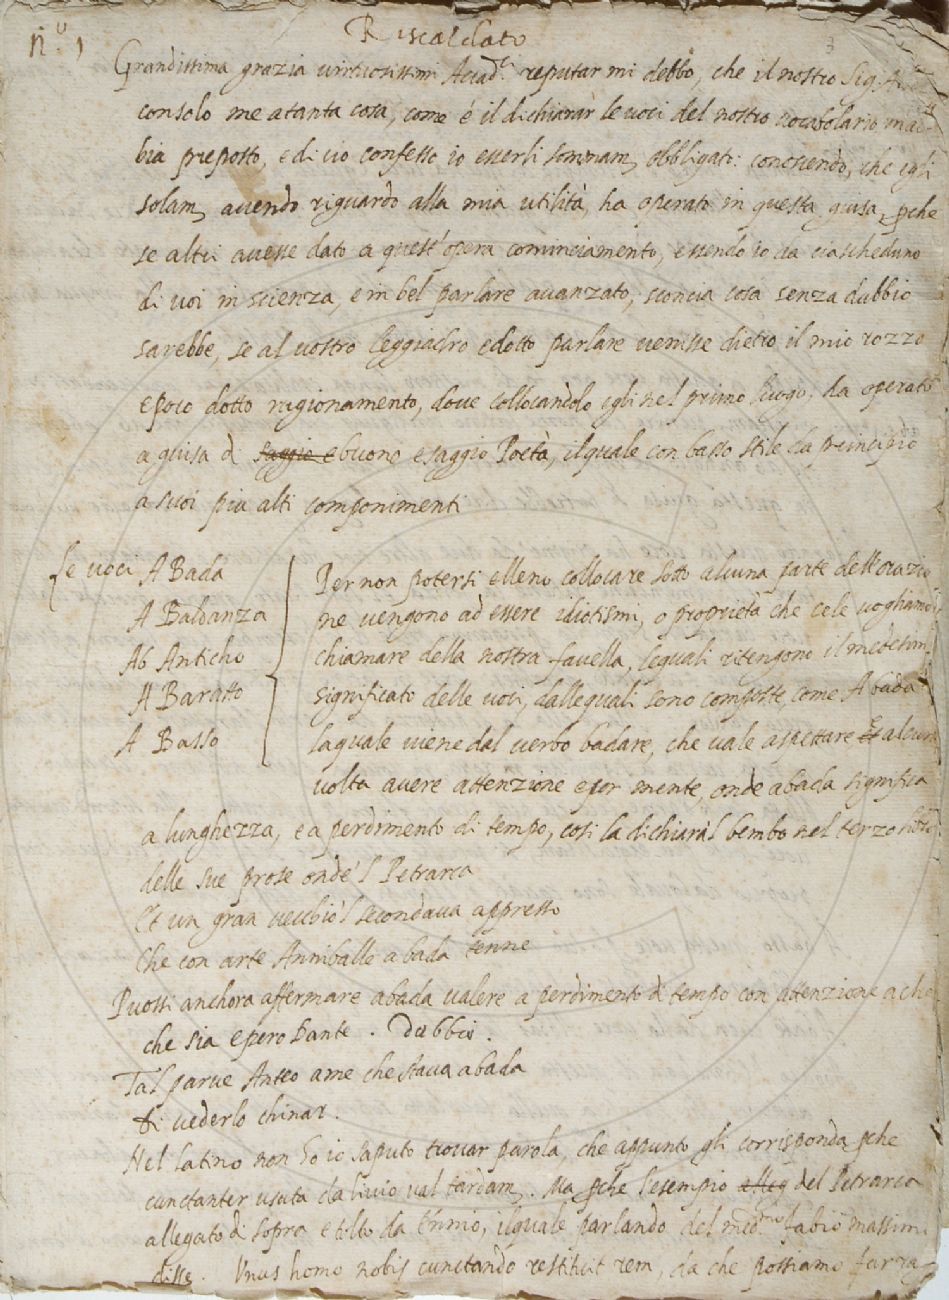 n.º 1
Riscaldato
Grandissima grazia virtuosissimi Accad.ci reputar mi debbo, che il nostro Sig.
consolo me a tanta cosa, come é il dichiarar le voci del nostro vocabolario m'ab-
bia preposto, e di cio confesso io esserli sommam. obbligato: conoscendo, che egli
solam. avendo riguardo alla mia utilità, ha operato in questa guisa, pche
se altri avesse dato a quest'opera cominciamento, essendo io da ciascheduno
di voi in scienza, e in bel parlare avanzato, sconcia cosa senza dubbio
sarebbe, se al vostro leggiadro e dotto parlare venisse dietro il mio rozzo
e poco dotto ragionamento, dove collocandolo egli nel primo luogo, ha operato
a guisa di saggio e buono e saggio Poeta, il quale con basso stile da principio
a suoi piu alti componimenti
Le voci A Bada
A Baldanza
Ab Anticho
A Baratto
A Basso
Per non potersi elleno collocare sotto alcuna parte dell'orazio
ne vengono ad essere idiotismi, o proprietà che cele vogliamo
chiamare della nostra favella, lequali ritengono il medesim.
significato delle voci, dallequali sono composte, come A bada
laquale viene dal verbo badare, che vale aspettare Et alcuna
volta avere attenzione e por mente, onde abada significa
a lunghezza, e a perdimento di tempo, cosi la dichiara 'l bembo nel terzo libro
delle sue prose onde 'l Petrarca
Et un gran vecchio 'l secondava appresso
Che con arte Anniballe a bada tenne
Puossi anchora affermare abada valere a perdimento di tempo con attenzione a che
che sia e pero Dante. Dubbio.
Tal parve Anteo a me che stava a bada
Di vederlo chinar.
Nel latino non ho io saputo trovar parola, che appunto gli corrisponda pche
cunctanter usata da livio val tardam. Ma pche l'esempio del Petrarca
allegato di sopra e tolto da Ennio, ilquale parlando del med.mo fabio massim.
disse. Unus homo nobis cunctando restituit rem, da che possiamo